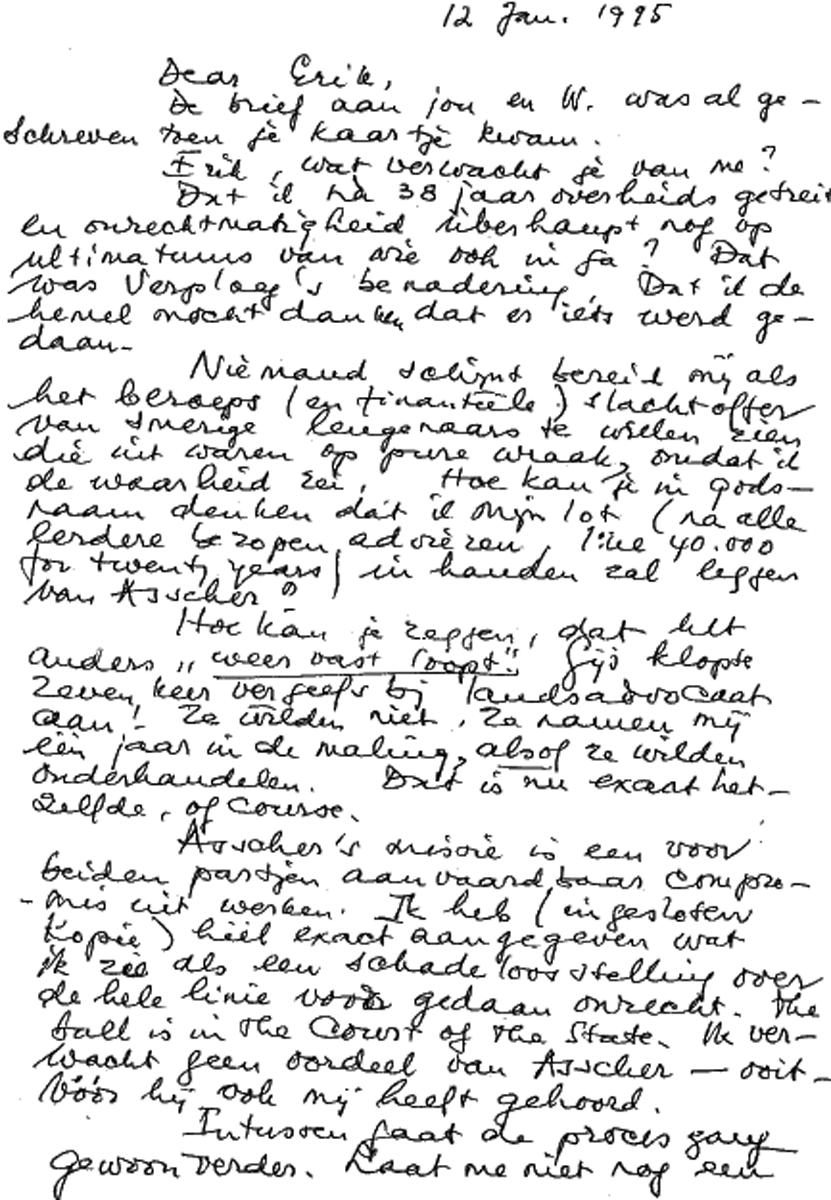 12 Jan. 1995
Dear Erik,
De brief aan jou en W. was al ge-
schreven toen je kaartje kwam.
Erik, wat verwacht je van me?
Dat ik na 38 jaar overheids getreit
en onrechtmatigheid überhaupt nog op
ultimatums van wie ook in ga? Dat
was Verploeg's benadering. Dat ik de
hemel mocht danken, dat er iets werd ge-
daan-
Niemand schijnt bereid mij als
het beroeps (en finantiële) slachtoffer
van smerige leugenaars te willen zien
die uit waren op pure wraak, omdat ik
de waarheid zei. Hoe kan je in gods-
naam denken dat ik mijn lot (na alle
eerdere bezopen adviezen, like 40.000
for twenty years) in handen zal leggen
van Asscher?
Hoe kan je zeggen, dat het
anders „weer vast loopt". Gijs klopte
zeven keer vergeefs bij landsadvocaat
aan! Ze wilden niet. Ze namen mij
één jaar in de maling, alsof ze wilden
onderhandelen. Dat is nu exact het-
zelfde, of course.
Asscher's missie is een voor
beiden partijen aanvaardbaar compro-
-mis uit werken. Ik heb (ingesloten
kopie) héél exact aangegeven wat
ik zie als een schadeloosstelling over
de hele linie voor gedaan onrecht. The
ball is in the Court of the State. Ik ver-
wacht geen oordeel van Asscher — ooit-
vóór hij ook mij heeft gehoord.
Intussen gaat de proces gang
gewoon verder. Laat me niet nog een